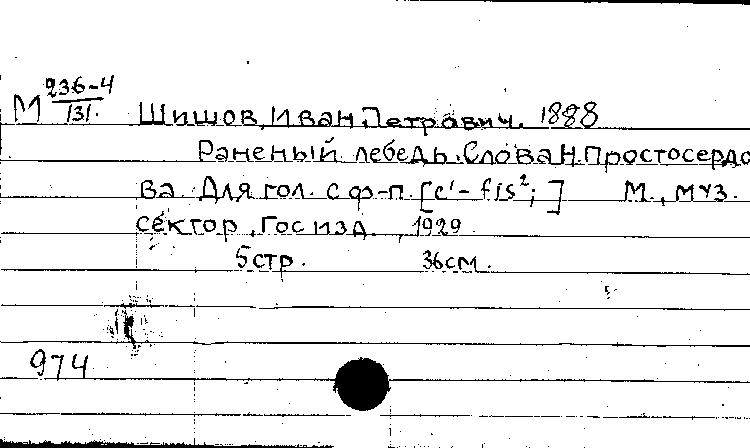 М 236-4/131. Шишов, Иван Петрович. 1888
Раненый лебедь. Слова Н. Простосердо
ва. Для гол. с ф-п. [c'- fis²; ] М., муз.
сектор, Госизд., 1929
5 стр. 36 см.
974